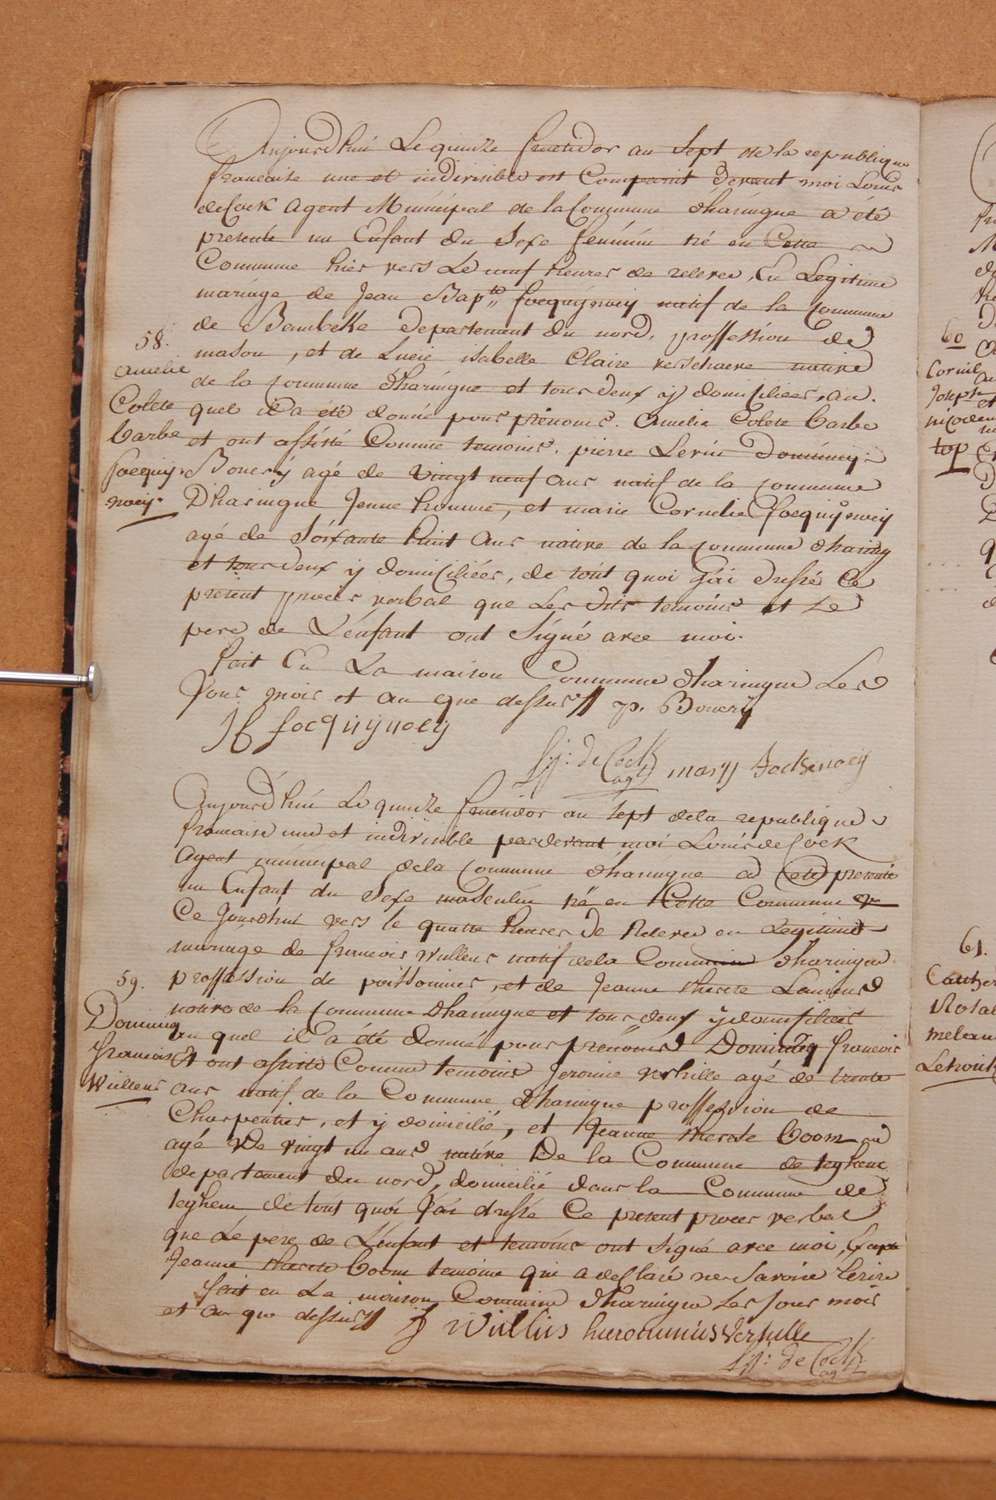 Aujourd'hui Le quinze fructidor an Sept de la republique
francaise une et indivisible est Comparut devant moi Louis
deCock Agent Municipal de la Commune dharingue a été
presenté un Enfant du Sexe feminin né en Cette
Commune hier vers Le neuf heures de relevee, En Legitime
mariage de Jean Bapte. focquijnoeij natif de la Commune
de Bambeke departement du nord, proffession de
mason, et de Lucie isabelle Claire verschaeve native
de la commune dharingue et tous deux ÿ domicilies, au
quel il a été donné pour prénoms. Amelie Colete barbe
et ont assisté Comme temoins. pierre Levin Dominicq
Bouerÿ agé de vingt neuf ans natif de la commune
Dharingue Jeune homme, et marie Cornelie focquijnoeij
agé de Soixante huit Ans native de la commune dharing
et tous deux ÿ domiciliées, de tout quoi J'ai dressé Ce
present proces verbal que Les dits temoins et Le
pere de L'enfant ont Signé avec moi.
fait En La maison Commune dharingue Les
Jour mois et an que dessus p. Bouerij
JB focquijnoeij
L: de Cock agt marij fockenoeij
58.
Amelie
Colete
barbe
focquij-
noeij
Aujourd'hui Le quinze fructidor an Sept de la republique
francaise une et indivisible pardevant moi Louis deCock
Agent municipal de la Commune dharingue a été presenté
un Enfant du Sexe masculin né en Cette Commune
Ce Jourdhui vers le quatre heures de Relevee en Legitime
mariage de francois Wullens natif de la Commune dharingue
proffession de poissonnier, et de Jeanne therese
native de la Commune dharingue et tous deux ÿ domicilies
au quel il a été donné pour prenoms Dominicq francois
et ont assisté Comme temoins Jerome Verhille agé de trente
ans natif de la Commune dharingue proffession de
Charpentier, et ÿ domicilié, et Jeanne therese boom
agé De vingt un ans native De la Commune de teghem
departement du nord, domicilié dans la Commune de
teghem de tout quoi J'ai dressé Ce present proces verbal
que Le pere de L'enfant et temoins ont Signé avec moi, Excepte
Jeanne therese boom temoine qui a declaré ne Savoir Ecrire
fait en La maison Commune dharingue Les Jour mois
et an que dessus f Wullus hieronimus Verhille
L: de Cock agt
59.
Dominicq
francois
Wullens
60
Cornil
Joseph
nicodem
top
61.
Cather
Rosal
melan